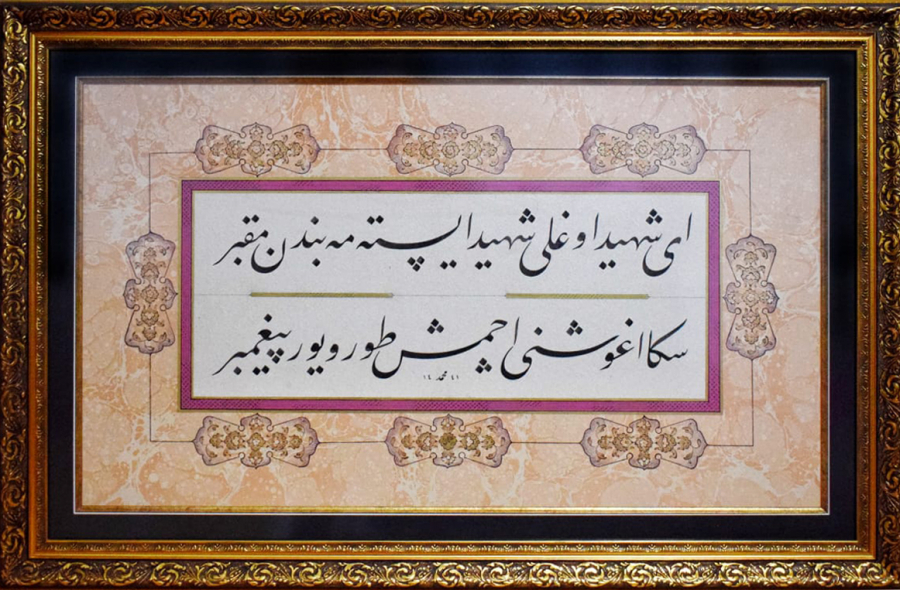 ای شهید اوغلی شهید ایسته مه بندن مقبر
سکا اغوشنی اچمش طورویور پیغمبر
محمد